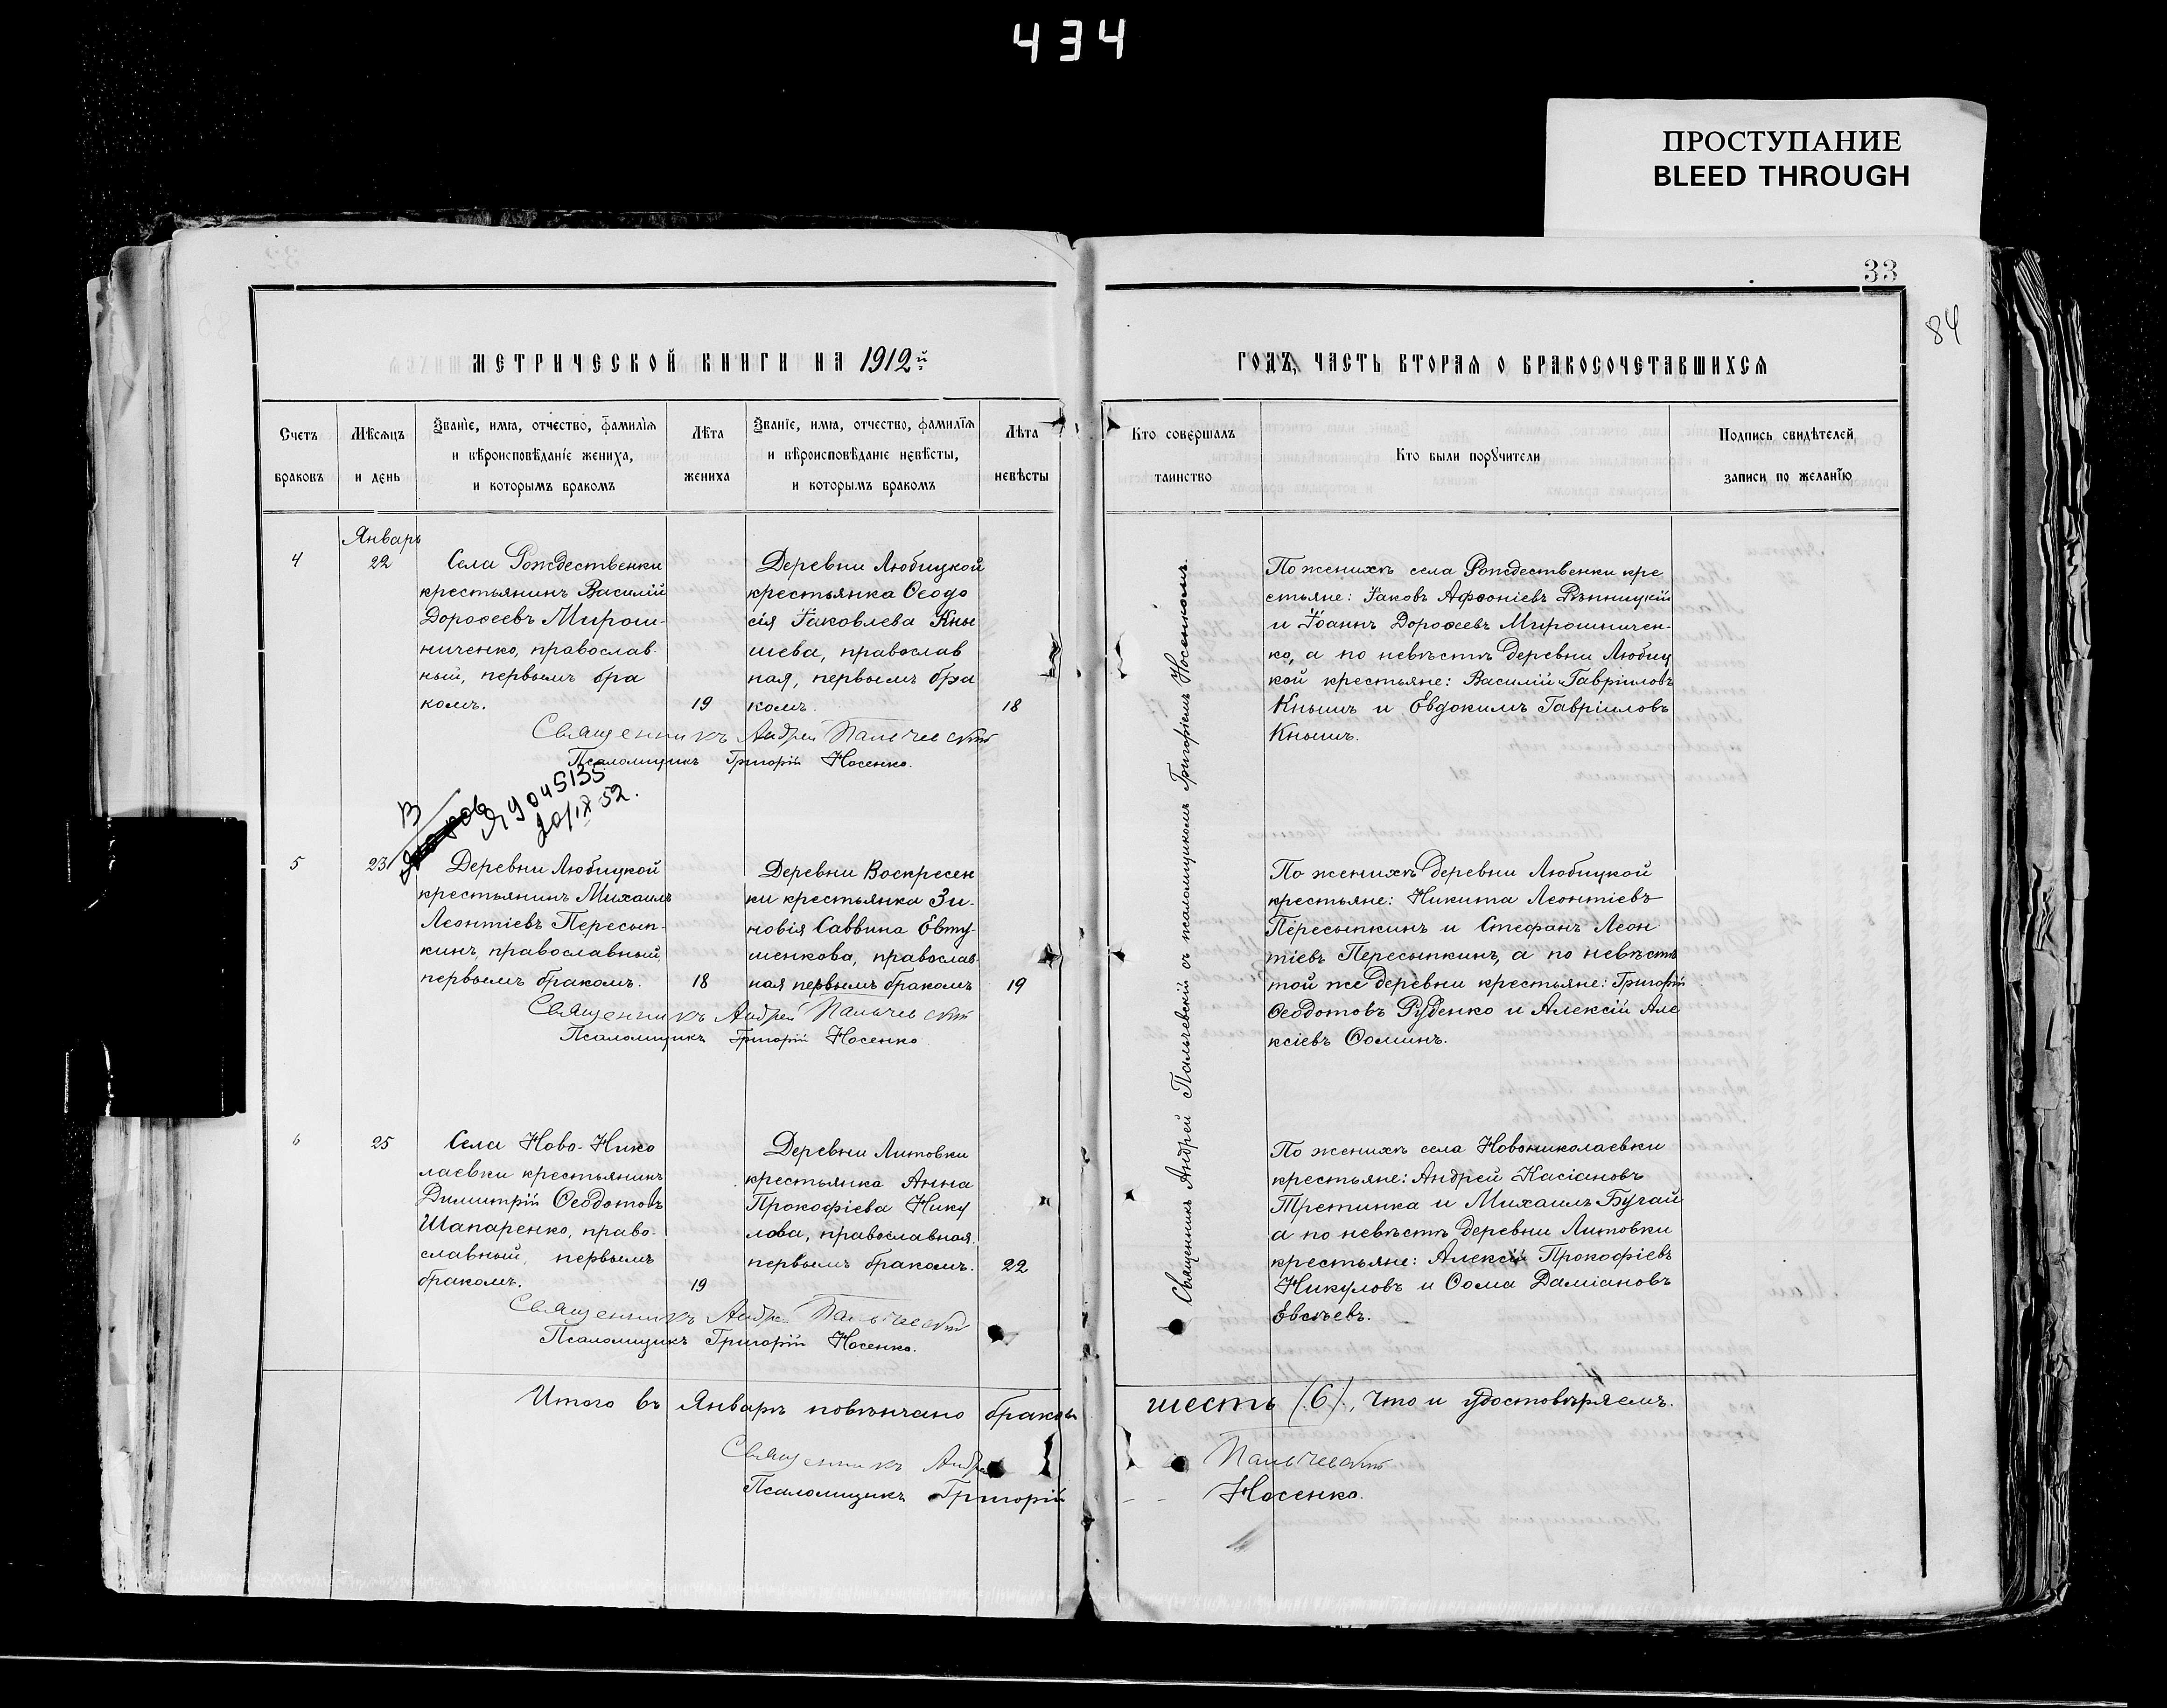 434
ПРОСТУПАНИЕ
BLEED THROUGH
33
84
МЕТРИЧЕСКОЙ КНИГИ НА 1912й
ГОДЪ, ЧАСТЬ ВТОРАЯ О БРАКОСОЧЕТАВШИХСЯ
Счетъ
браковъ
Мѣсяцъ
и день
Званіе, имя, отчество, фамилія
и вѣроисповѣданіе жениха,
и которымъ бракомъ
Лѣта
жениха
Званіе, имя, отчество, фамилія
и вѣроисповѣданіе невѣсты,
и которымъ бракомъ
Лѣта
невѣсты
Кто совершалъ
таинство
Кто были поручители
Подпись свидѣтелей
записи по желанію
Январь
4
22
Села Рождественки
крестьянинъ Василій
Дорофеевъ Мирош-
ниченко, православ
ный, первымъ бра
комъ.
19
Деревни Любицкой
крестьянка Ѳеодо
сія Іаковлева Кны
шева, православ
ная, первымъ бра
комъ.
18
Священникъ Андрей Пальчевскій
Псаломщикъ Григорій Носенко.
По женихѣ села Рождественки кре
стьяне: Іаковъ Афѳоніевъ Рѣпницкій
и Іоаннъ Дорофеевъ Мирошничен-
ко, а по невѣстѣ деревни Любиц
кой крестьяне: Василій Гавріиловъ
Кнышъ и Евдокимъ Гавріиловъ
Кнышъ.
20/IX 52.
5
23
Деревни Любицкой
крестьянинъ Михаилъ
Леонтіевъ Пересып-
кинъ, православный,
первымъ бракомъ.
18
Деревни Воскресен
ки крестьянка Зи-
новія Саввина Евту-
шенкова, православ-
ная первымъ бракомъ
19
Священникъ Андрей Пальчевскій
Псаломщикъ Григорій Носенко
По женихѣ деревни Любицкой
крестьяне: Никита Леонтіевъ
Пересыпкинъ и Стефанъ Леон
тіевъ Пересыпкинъ, а по невѣстѣ
той же деревни крестьяне: Григорій
Ѳеодотовъ Руденко и Алексій Але
ксіевъ Ѳоминъ.
6
25
Села Ново-Нико
лаевки крестьянинъ
Димитрій Ѳеодотовъ
Шапаренко, право-
славный, первымъ
бракомъ.
19
Деревни Литовки
крестьянка Анна
Прокофіева Нику
лова, православная,
первымъ бракомъ.
22
Священникъ Андрей Пальчевскій
Псаломщикъ Григорій Носенко.
По женихѣ села Новониколаевки
крестьяне: Андрей Касіановъ
Третинка и Михаилъ Бугай
а по невѣстѣ деревни Литовки
крестьяне: Алексій Прокофіевъ
Никуловъ и Ѳома Даміановъ
Евсѣевъ.
Священникъ Андрей Пальчевскій съ псаломщикомъ Григоріемъ Носенкомъ.
Итого въ Январѣ повѣнчано браковъ шесть (6), что и удостовѣряемъ.
Священникъ Андрей Пальчевскій
Псаломщикъ Григорій Носенко.